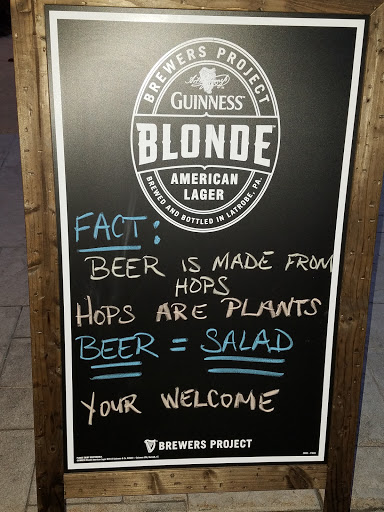 BREWERS PROJECT
GUINNESS
BLONDE
AMERICAN
LAGER
BREWED AND BOTTLED IN LATROBE, PA.
FACT:
BEER IS MADE FROM
HOPS
HOPS ARE PLANTS
BEER = SALAD
YOUR WELCOME
BREWERS PROJECT